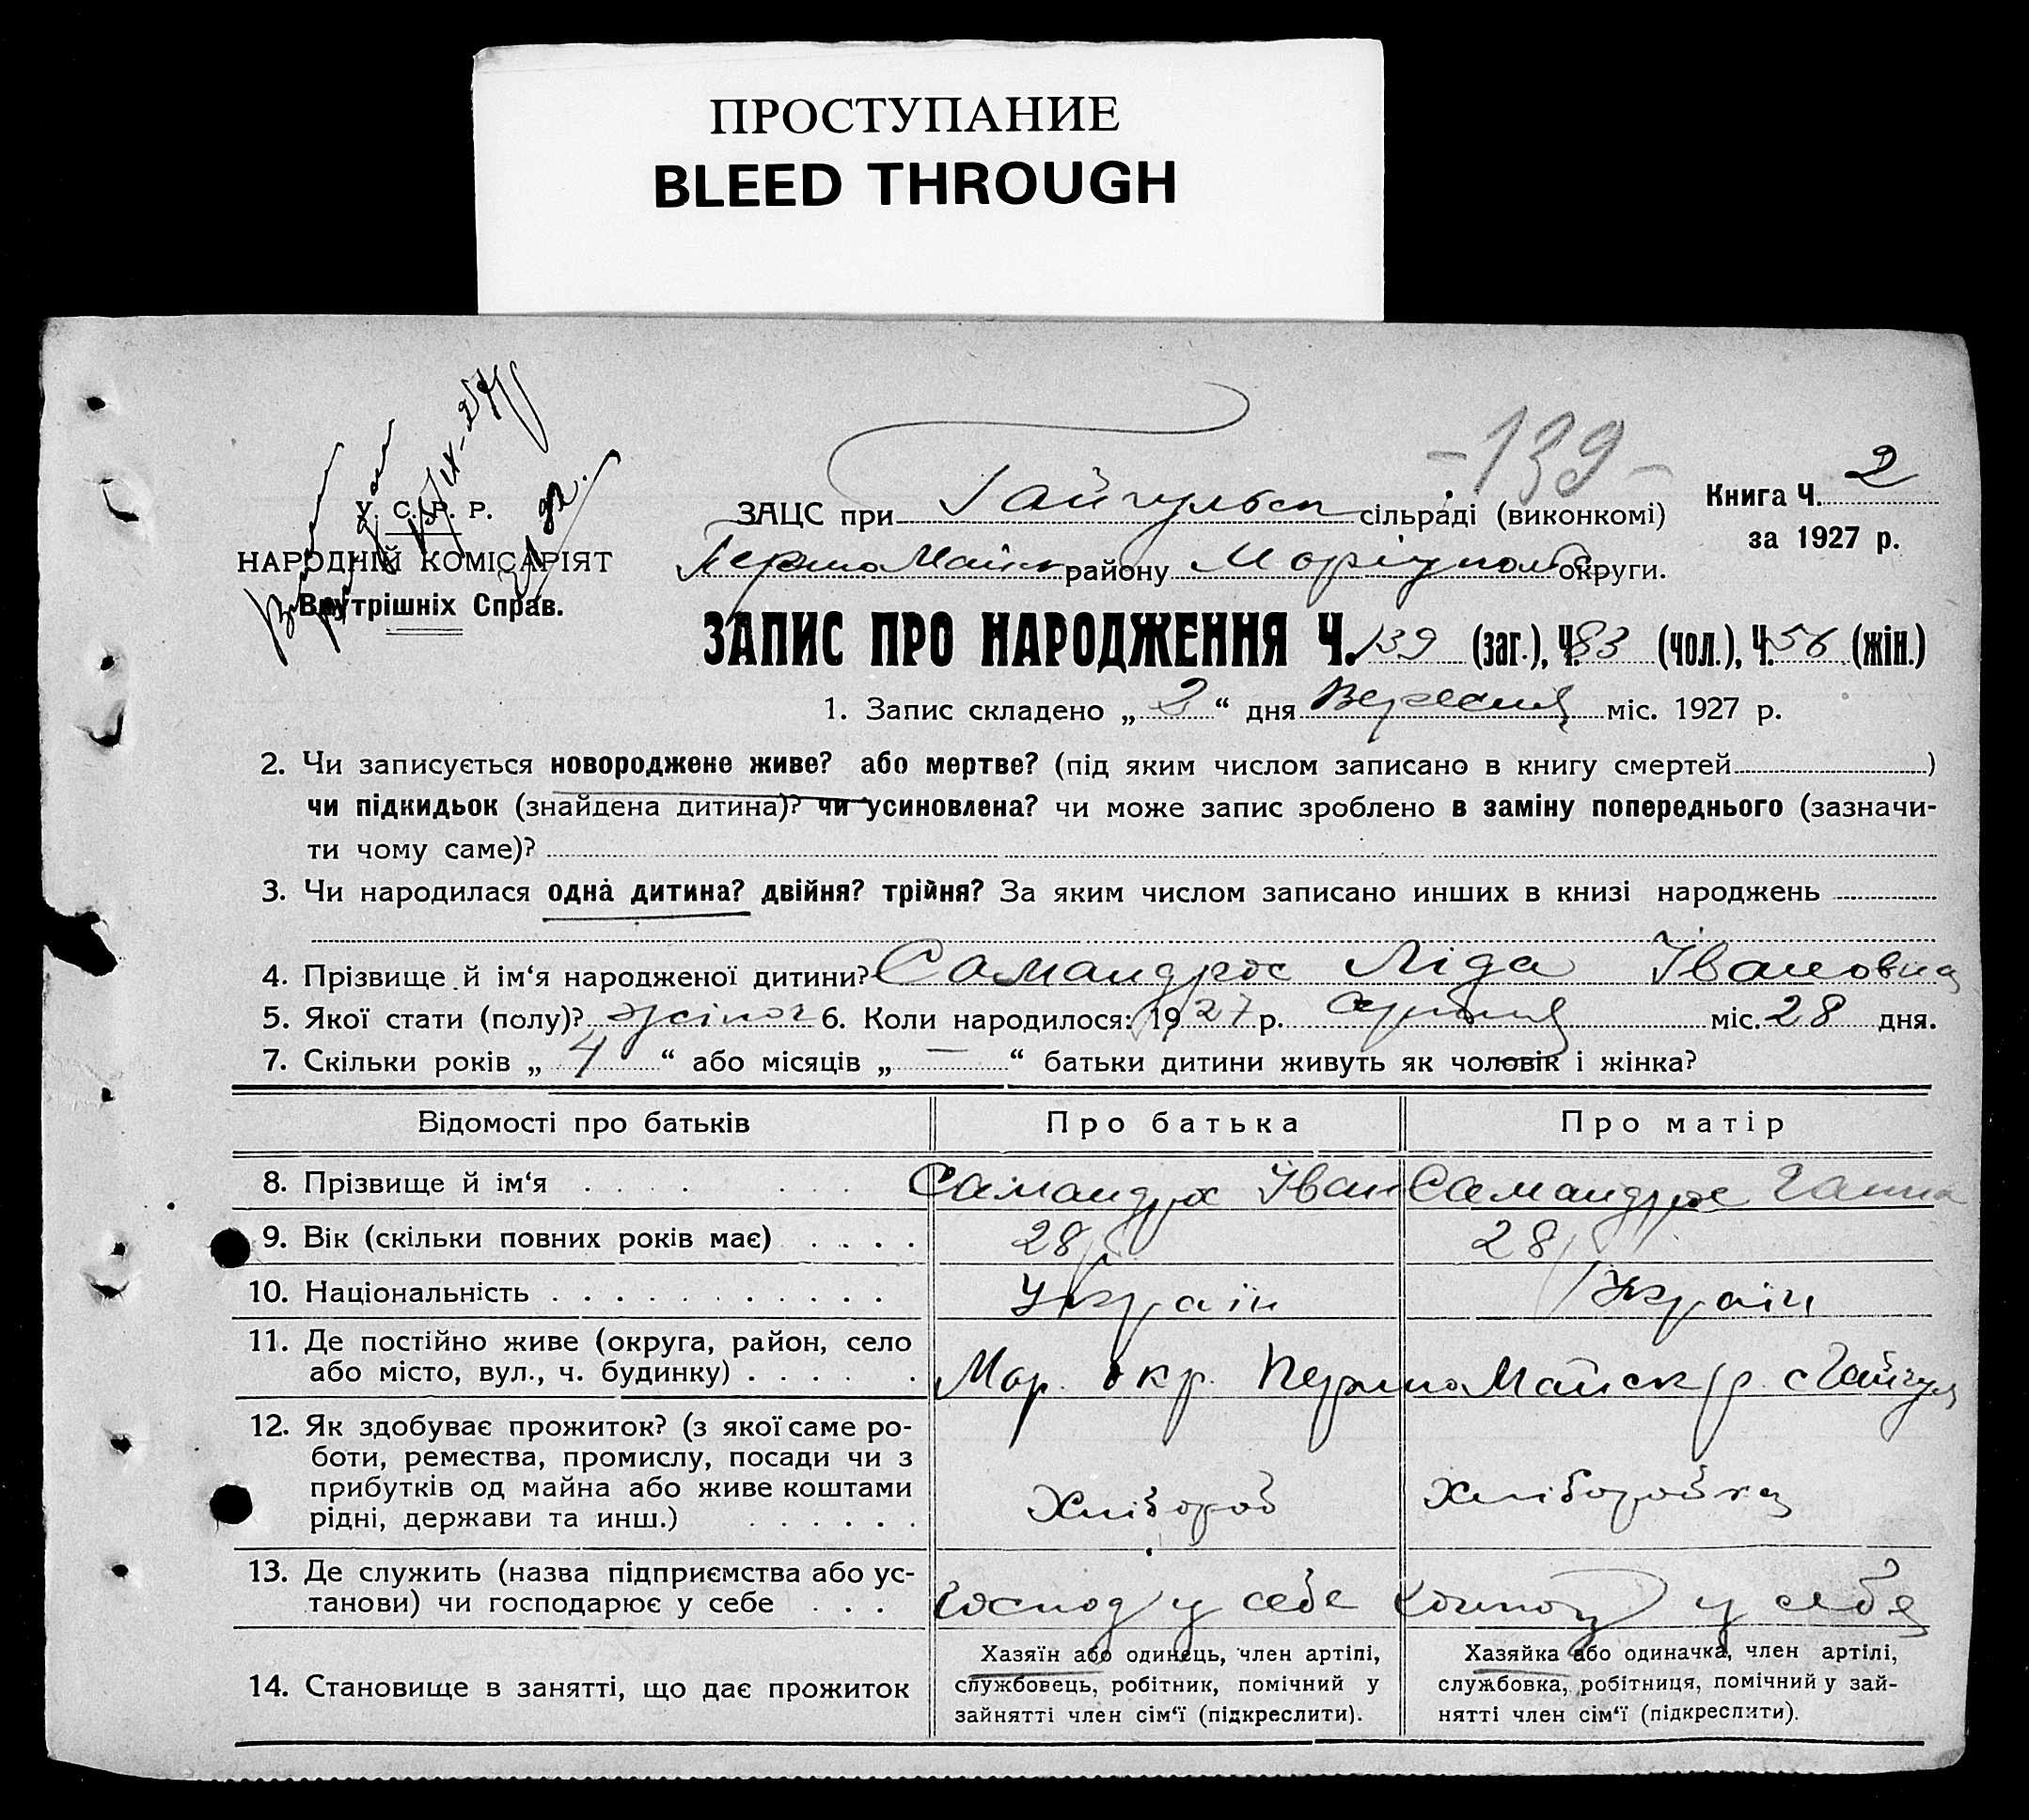 ПРОСТУПАНИЕ
BLEED THROUGH
-139-
У. С. Р. Р.
НАРОДНІЙ КОМІСАРІЯТ
Внутрішніх Справ.
ЗАЦС при Гайчульськ сільраді (виконкомі)
Книга Ч. 2
за 1927 р.
ПершоМайськ району Маріупольс округи.
ЗАПИС ПРО НАРОДЖЕННЯ Ч. 139 (заг.), Ч. 83 (чол.), Ч. 56 (жін.)
1. Запис складено „ 2 “ дня Вересня міс. 1927 р.
2. Чи записується новороджене живе? або мертве? (під яким числом записано в книгу смертей )
чи підкидьок (знайдена дитина)? чи усиновлена? чи може запис зроблено в заміну попереднього (зазначи-
ти чому саме)?
3. Чи народилася одна дитина? двійня? трійня? За яким числом записано инших в книзі народжень
4. Прізвище й ім‘я народженої дитини? Самандрос Ліда Івановна
5. Якої стати (полу)? жіноч 6. Коли народилося: 1927 р. серпня міс. 28 дня.
7. Скільки років „ 4 “ або місяців „ — “ батьки дитини живуть як чоловік і жінка?
Відомості про батьків Про батька Про матір
8. Прізвище й ім‘я Самандрос Іван Самандрос Ганна
9. Вік (скільки повних років має) 28 28
10. Національність Україн Україн
11. Де постійно живе (округа, район, село
або місто, вул., ч. будинку) Мар. окр. ПершоМайськ р. с Гайчул
12. Як здобуває прожиток? (з якої саме ро-
боти, ремества, промислу, посади чи з
прибутків од майна або живе коштами
рідні, держави та инш.) Хлібороб Хліборобка
13. Де служить (назва підприємства або ус-
танови) чи господарює у себе Господ у себе у себе
14. Становище в занятті, що дає прожиток
Хазяїн або одинець, член артілі,
службовець, робітник, помічний у
зайнятті член сім‘ї (підкреслити).
Хазяйка або одиначка, член артілі,
службовка, робітниця, помічний у зай-
нятті член сім‘ї (підкреслити).